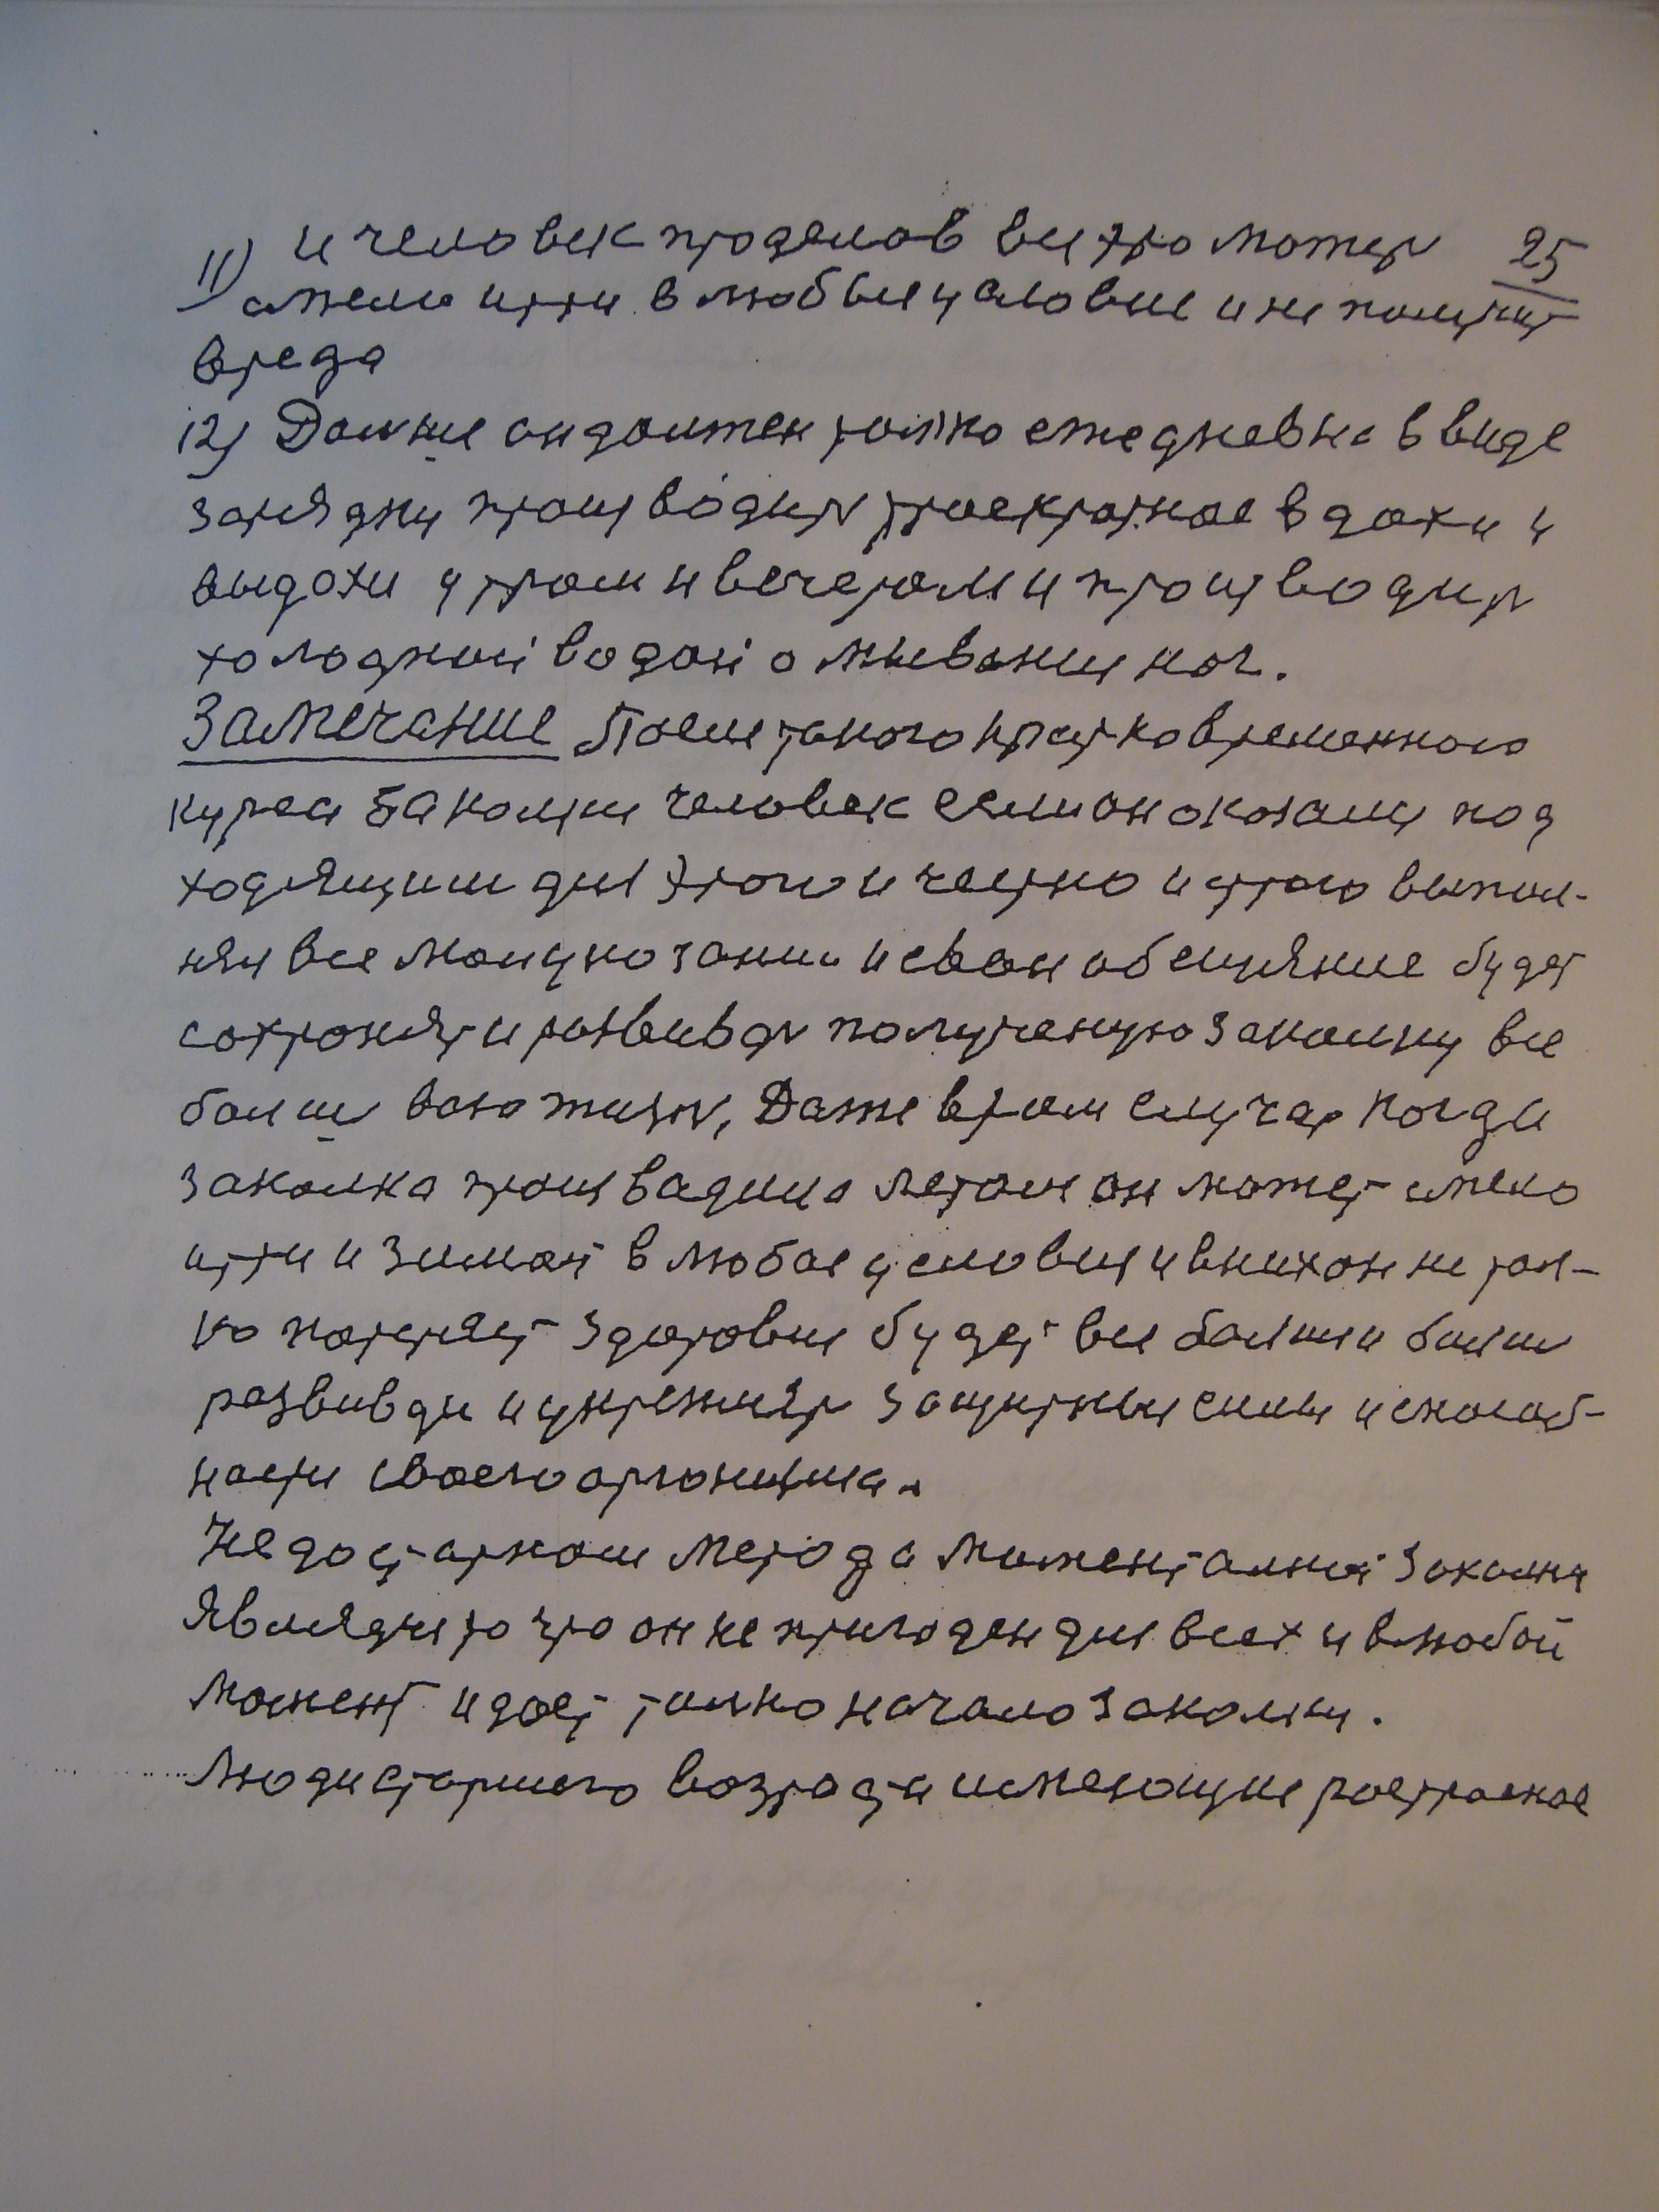 11) и человек проделов вы это можетъ 25
смело итти в любые условие и не получит
вреда
12) Далние он должен толко ежедневно в виде
зарядку производить троекратное вдохи и
выдохи утром и вечером и производить
холодной водой омывании ног.
Замечание После такого кратковременного
курса закалки человек если он окозался под
ходящим для этого и честно и строго выпол-
няя все мои указании и свои обещяние будет
сохронять и развивать полученую закалку все
болше всю жизнь, Даже в том случае когда
закалка производила летом он может смело
итти и зимой в любое условия и в них он не тол-
ко потеряет здоровие будет все болше и болше
развивать и укреплять защитные силы и способ-
ности своего организма.
Недостатком метода моменталной закалки
является то что он не пригоден для всех и в любой
момент и дает толко начало закалки.
Люди старшего возраста и имеющие расстроеное